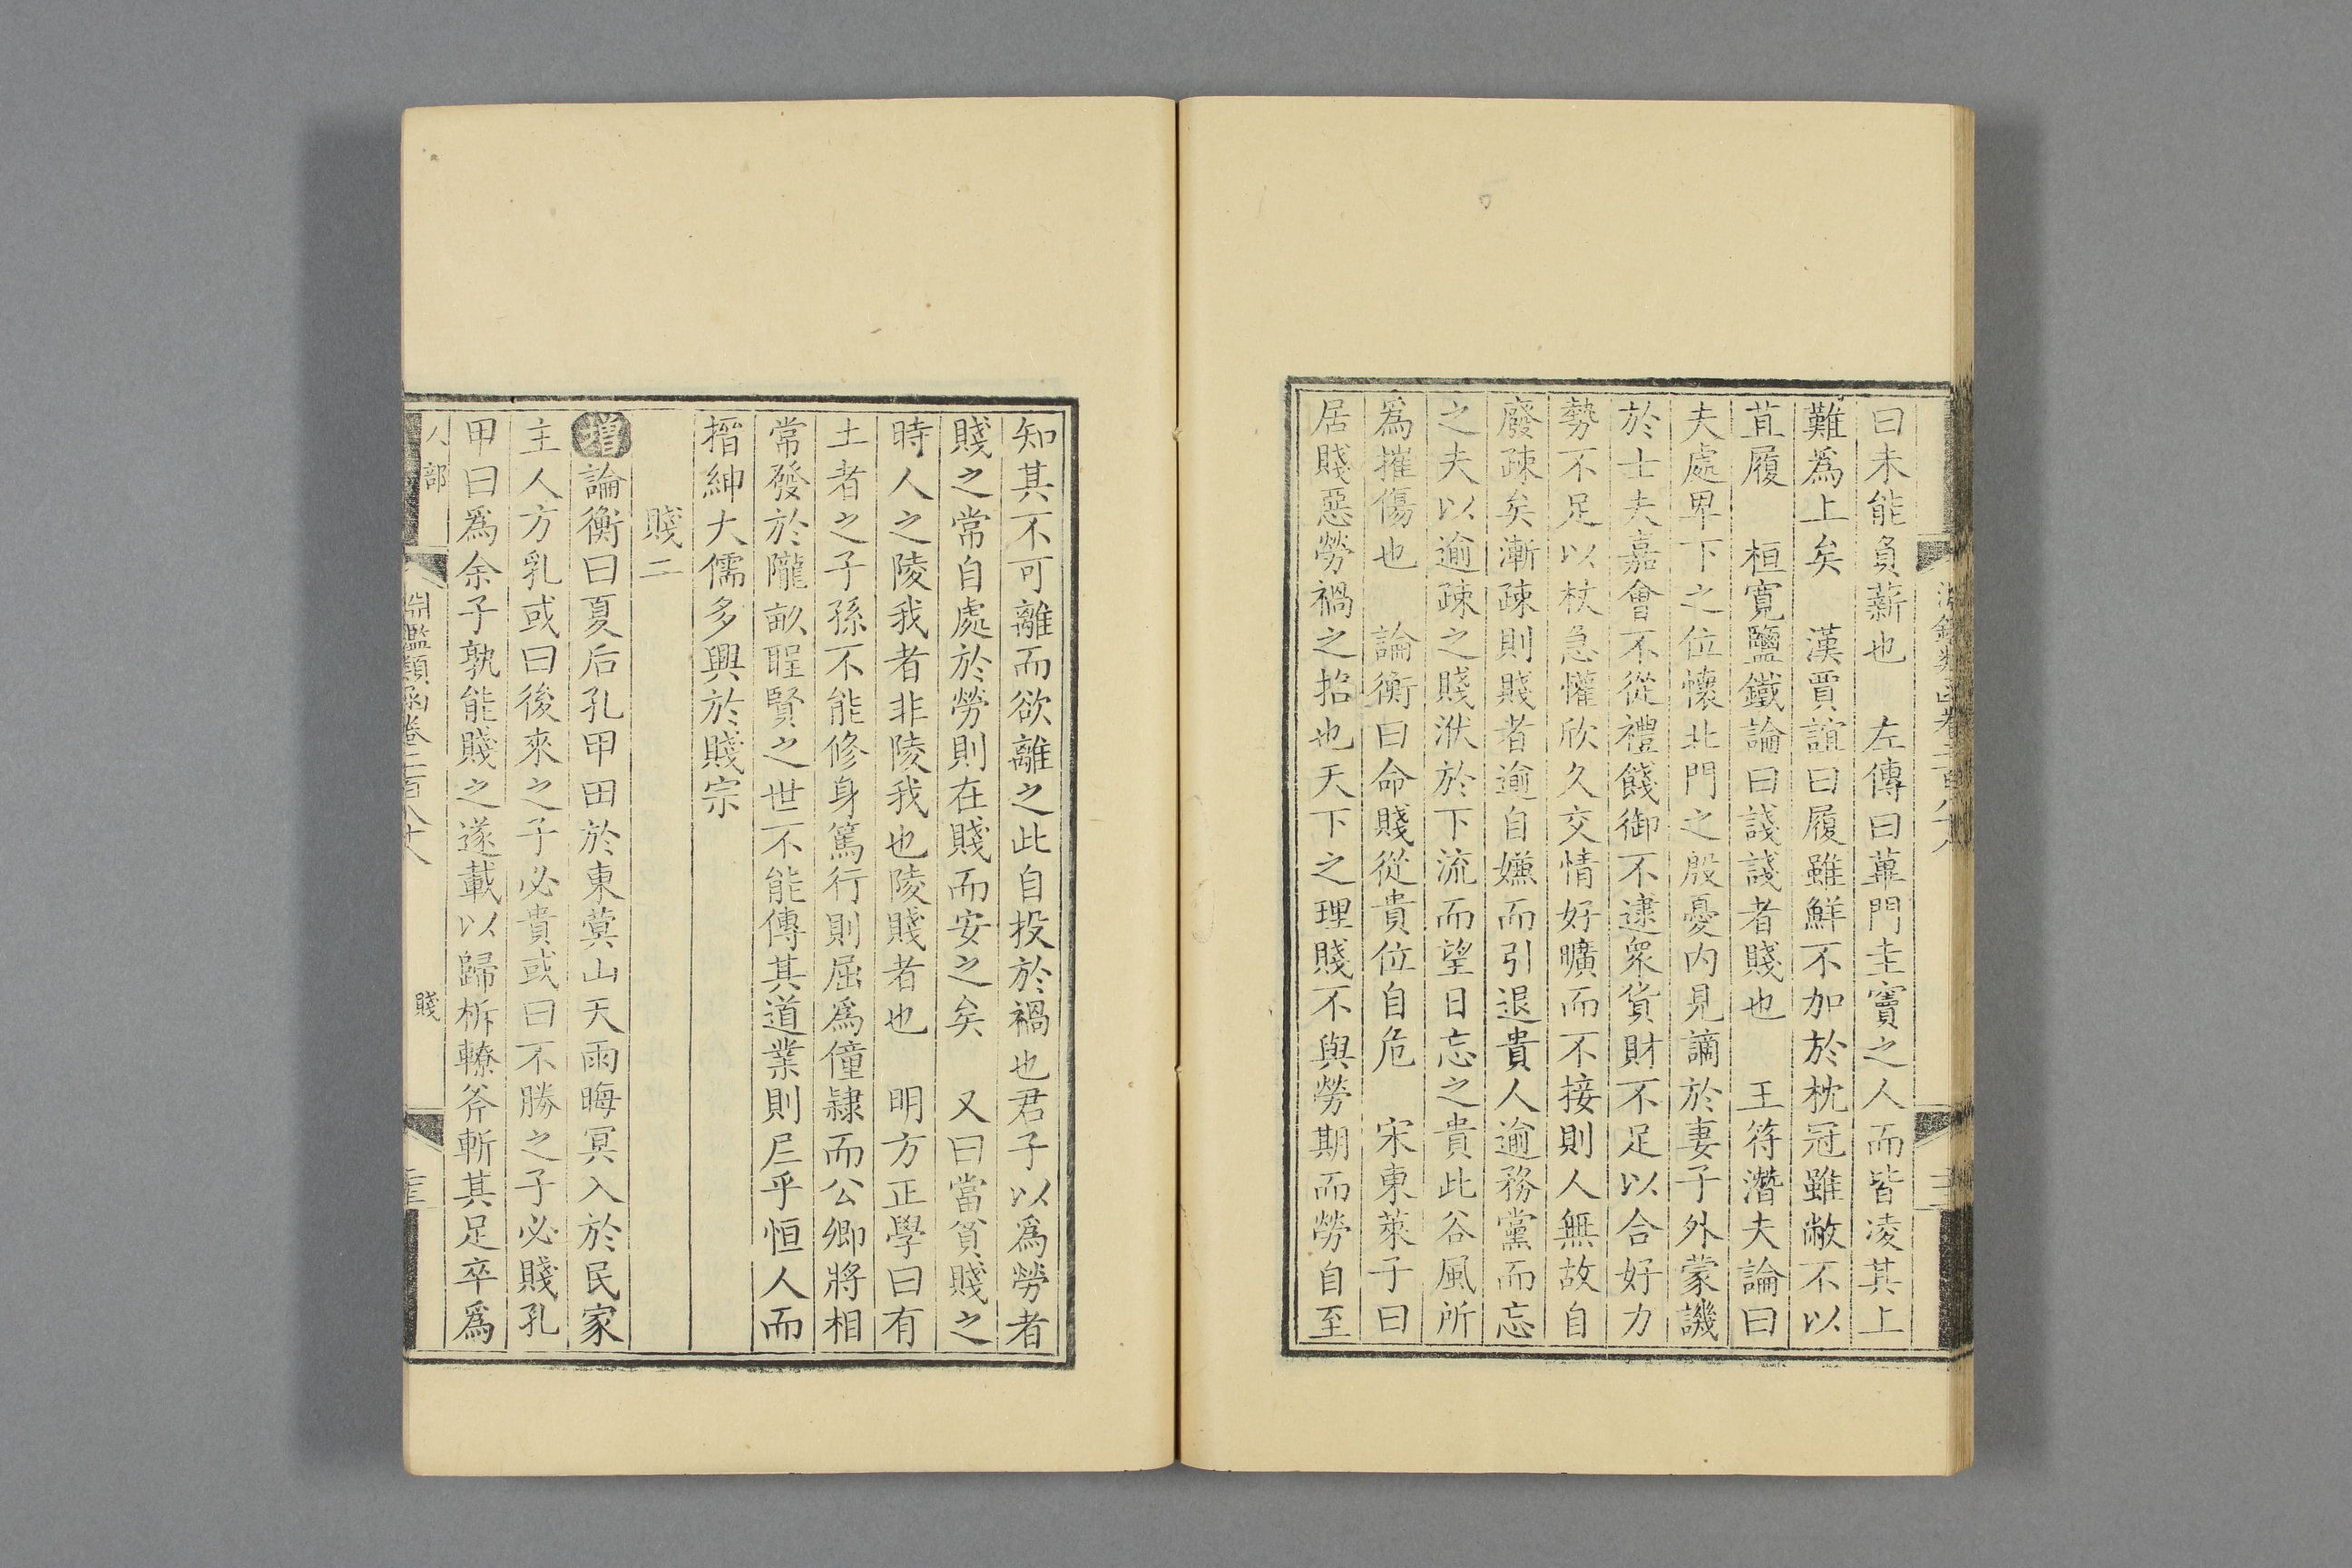 曰未能負薪也　左傳曰蓽門圭竇之人而皆凌其上
難爲上矣　漢賈誼曰履雖鮮不加於枕冠雖敝不以
苴履　桓寬鹽鐵論曰諓諓者賤也　王符潛夫論曰
夫處卑下之位懷北門之殷憂内見謫於妻子外蒙譏
於士夫嘉會不從禮餞御不逮衆貨財不足以合好力
勢不足以杖急懽欣久交情好曠而不接則人無故自
廢疎矣漸疎則賤者逾自嫌而引退貴人逾務黨而忘
之夫以逾疎之賤洑於下流而望日忘之貴此谷風所
爲摧傷也　論衡曰命賤從貴位自危　宋東萊子曰
居賤惡勞禍之招也天下之理賤不與勞期而勞自至
知其不可離而欲離之此自投於禍也君子以爲勞者
賤之常自處於勞則在賤而安之矣　又曰當貧賤之
時人之陵我者非陵我也陵賤者也　明方正學曰有
土者之子孫不能修身篤行則屈爲僮隸而公卿將相
常發於隴畝聖賢之世不能傳其道業則尼乎恒人而
搢紳大儒多興於賤宗
賤二
增論衡曰夏后孔甲田於東蓂山天雨晦冥入於民家
主人方乳或曰後來之子必貴或曰不勝之子必賤孔
甲曰爲余子孰能賤之遂載以歸析轑斧斬其足卒爲
人部
淵鑑類函卷二百八十八
賤